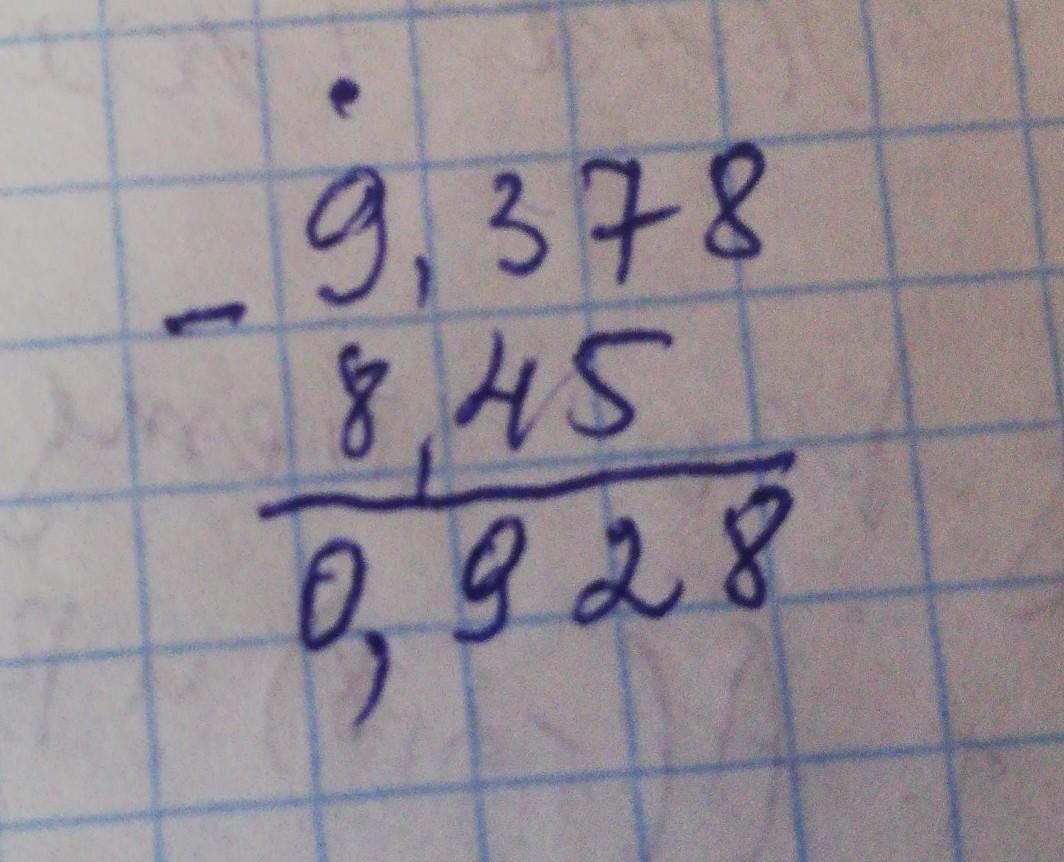 9,378
-
8,45
0,928